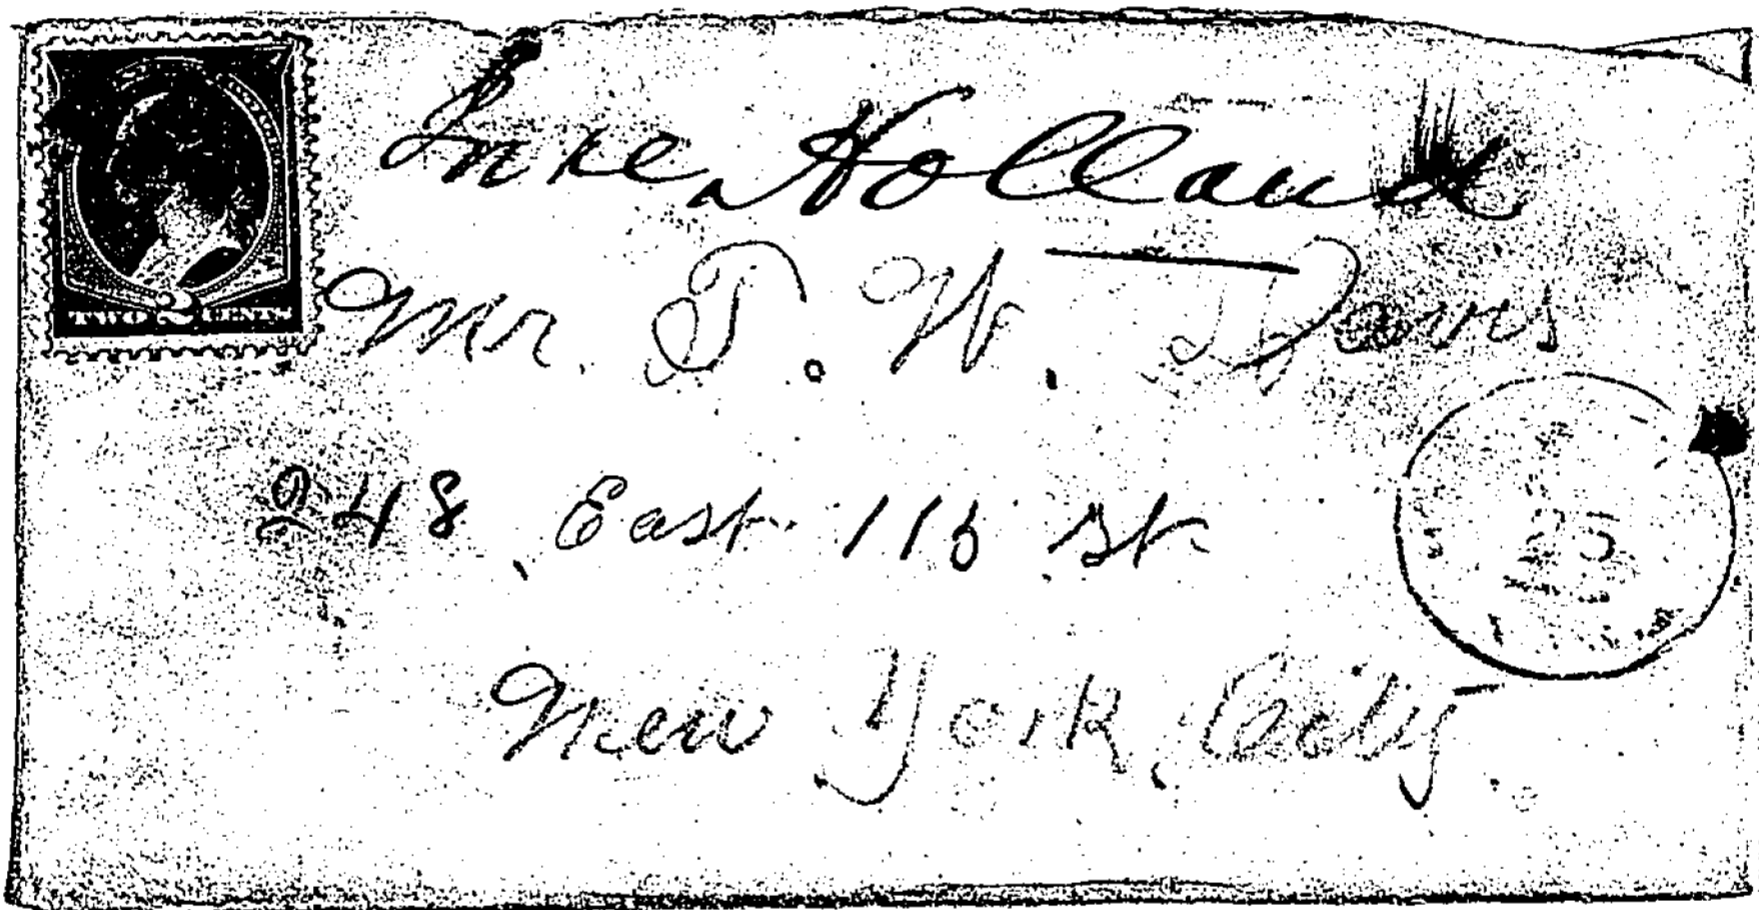 TWO 2 CENTS
In re Holland
Mr. T. W. Davis
248, East 116 St.
New York, City.
25